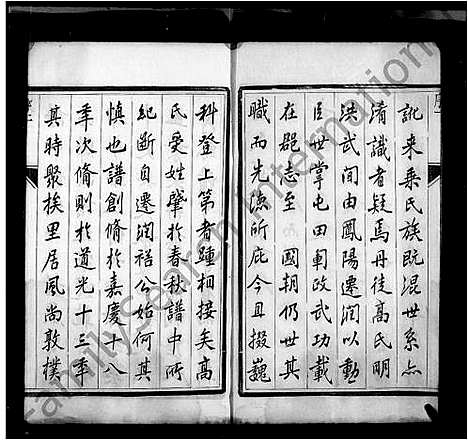 序一
訛來桒氏族既混世系亦
淆識者疑焉丹徒高氏明
洪武间由鳳陽遷润以勳
臣世掌屯田軍政武功載
在郡志至 國朝仍世其
職而先澤所庇今且掇巍
科登上第者踵相接矣高
氏受姓肇於春秋譜中所
紀斷自遷润福公始何其
慎也譜創脩於嘉慶十八
年次脩則於道光十三年
其時聚族里居風尚敦樸
FamilySearch International